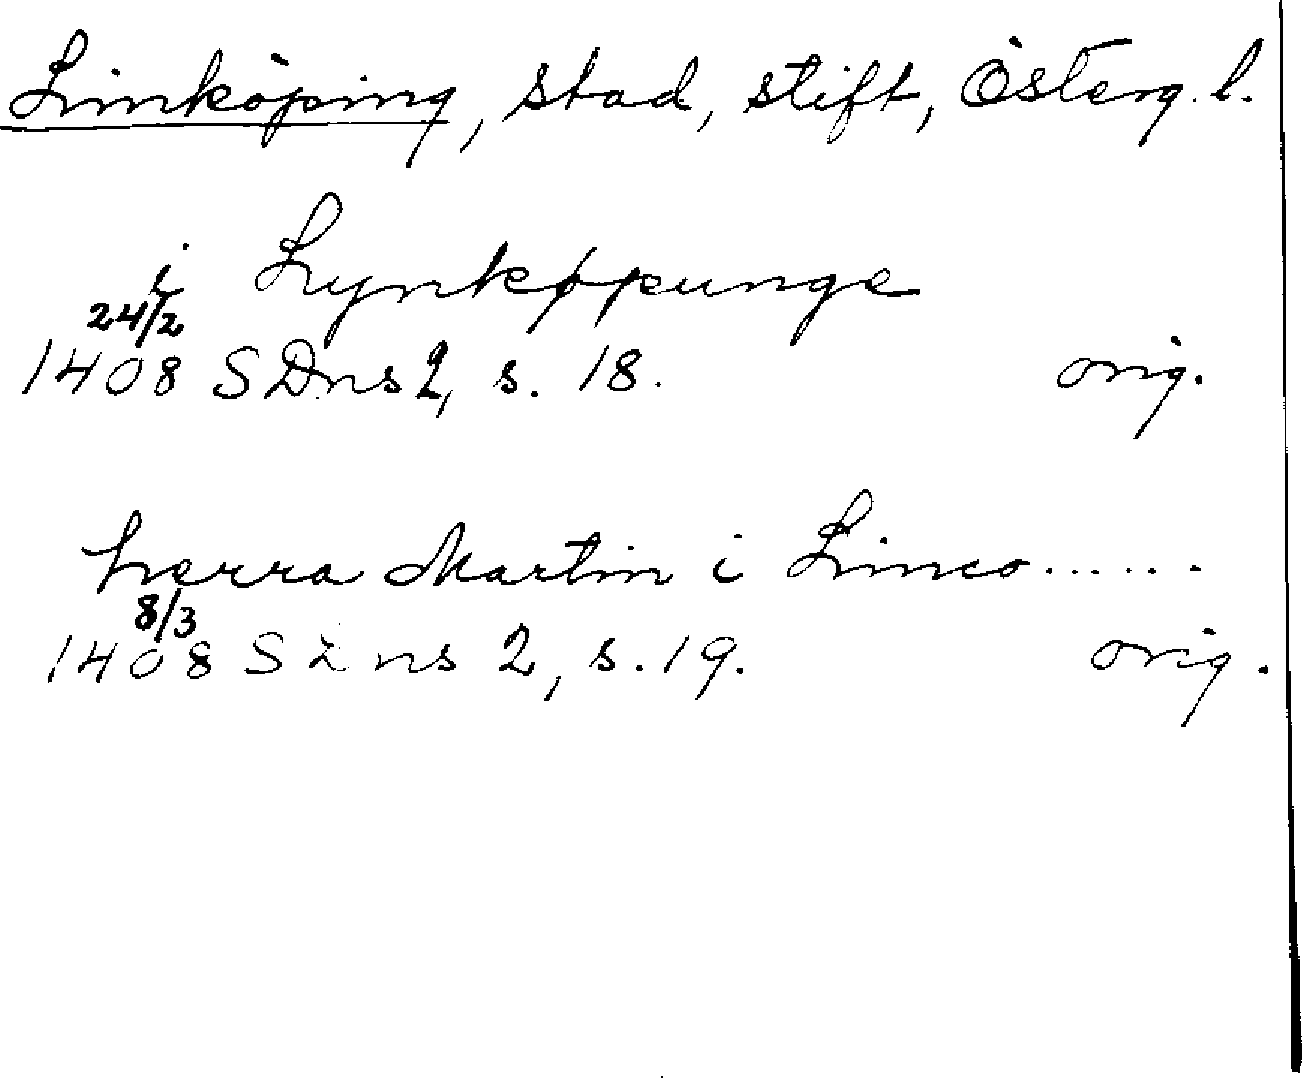 Linköping, stad, stift, Österg. l.
i Lynkøpunge
24/2
1408 SDns 2, s. 18. orig.
herra Martin i Linco......
8/3
1408 SDns 2, s. 19. orig.